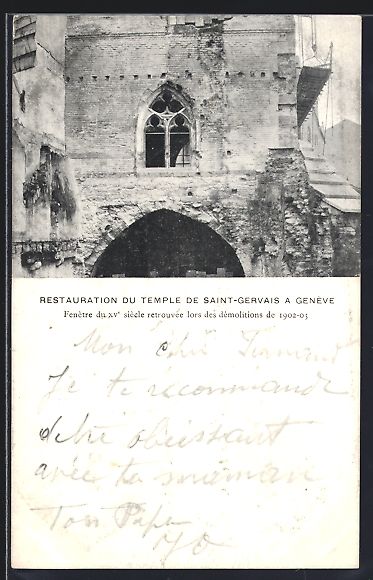 RESTAURATION DU TEMPLE DE SAINT-GERVAIS A GENÈVE
Fenêtre du XVe siècle retrouvée lors des démolitions de 1902-03
Mon chér
Je te recommande
dêtre obeissant
avec ta maman
Ton Papa